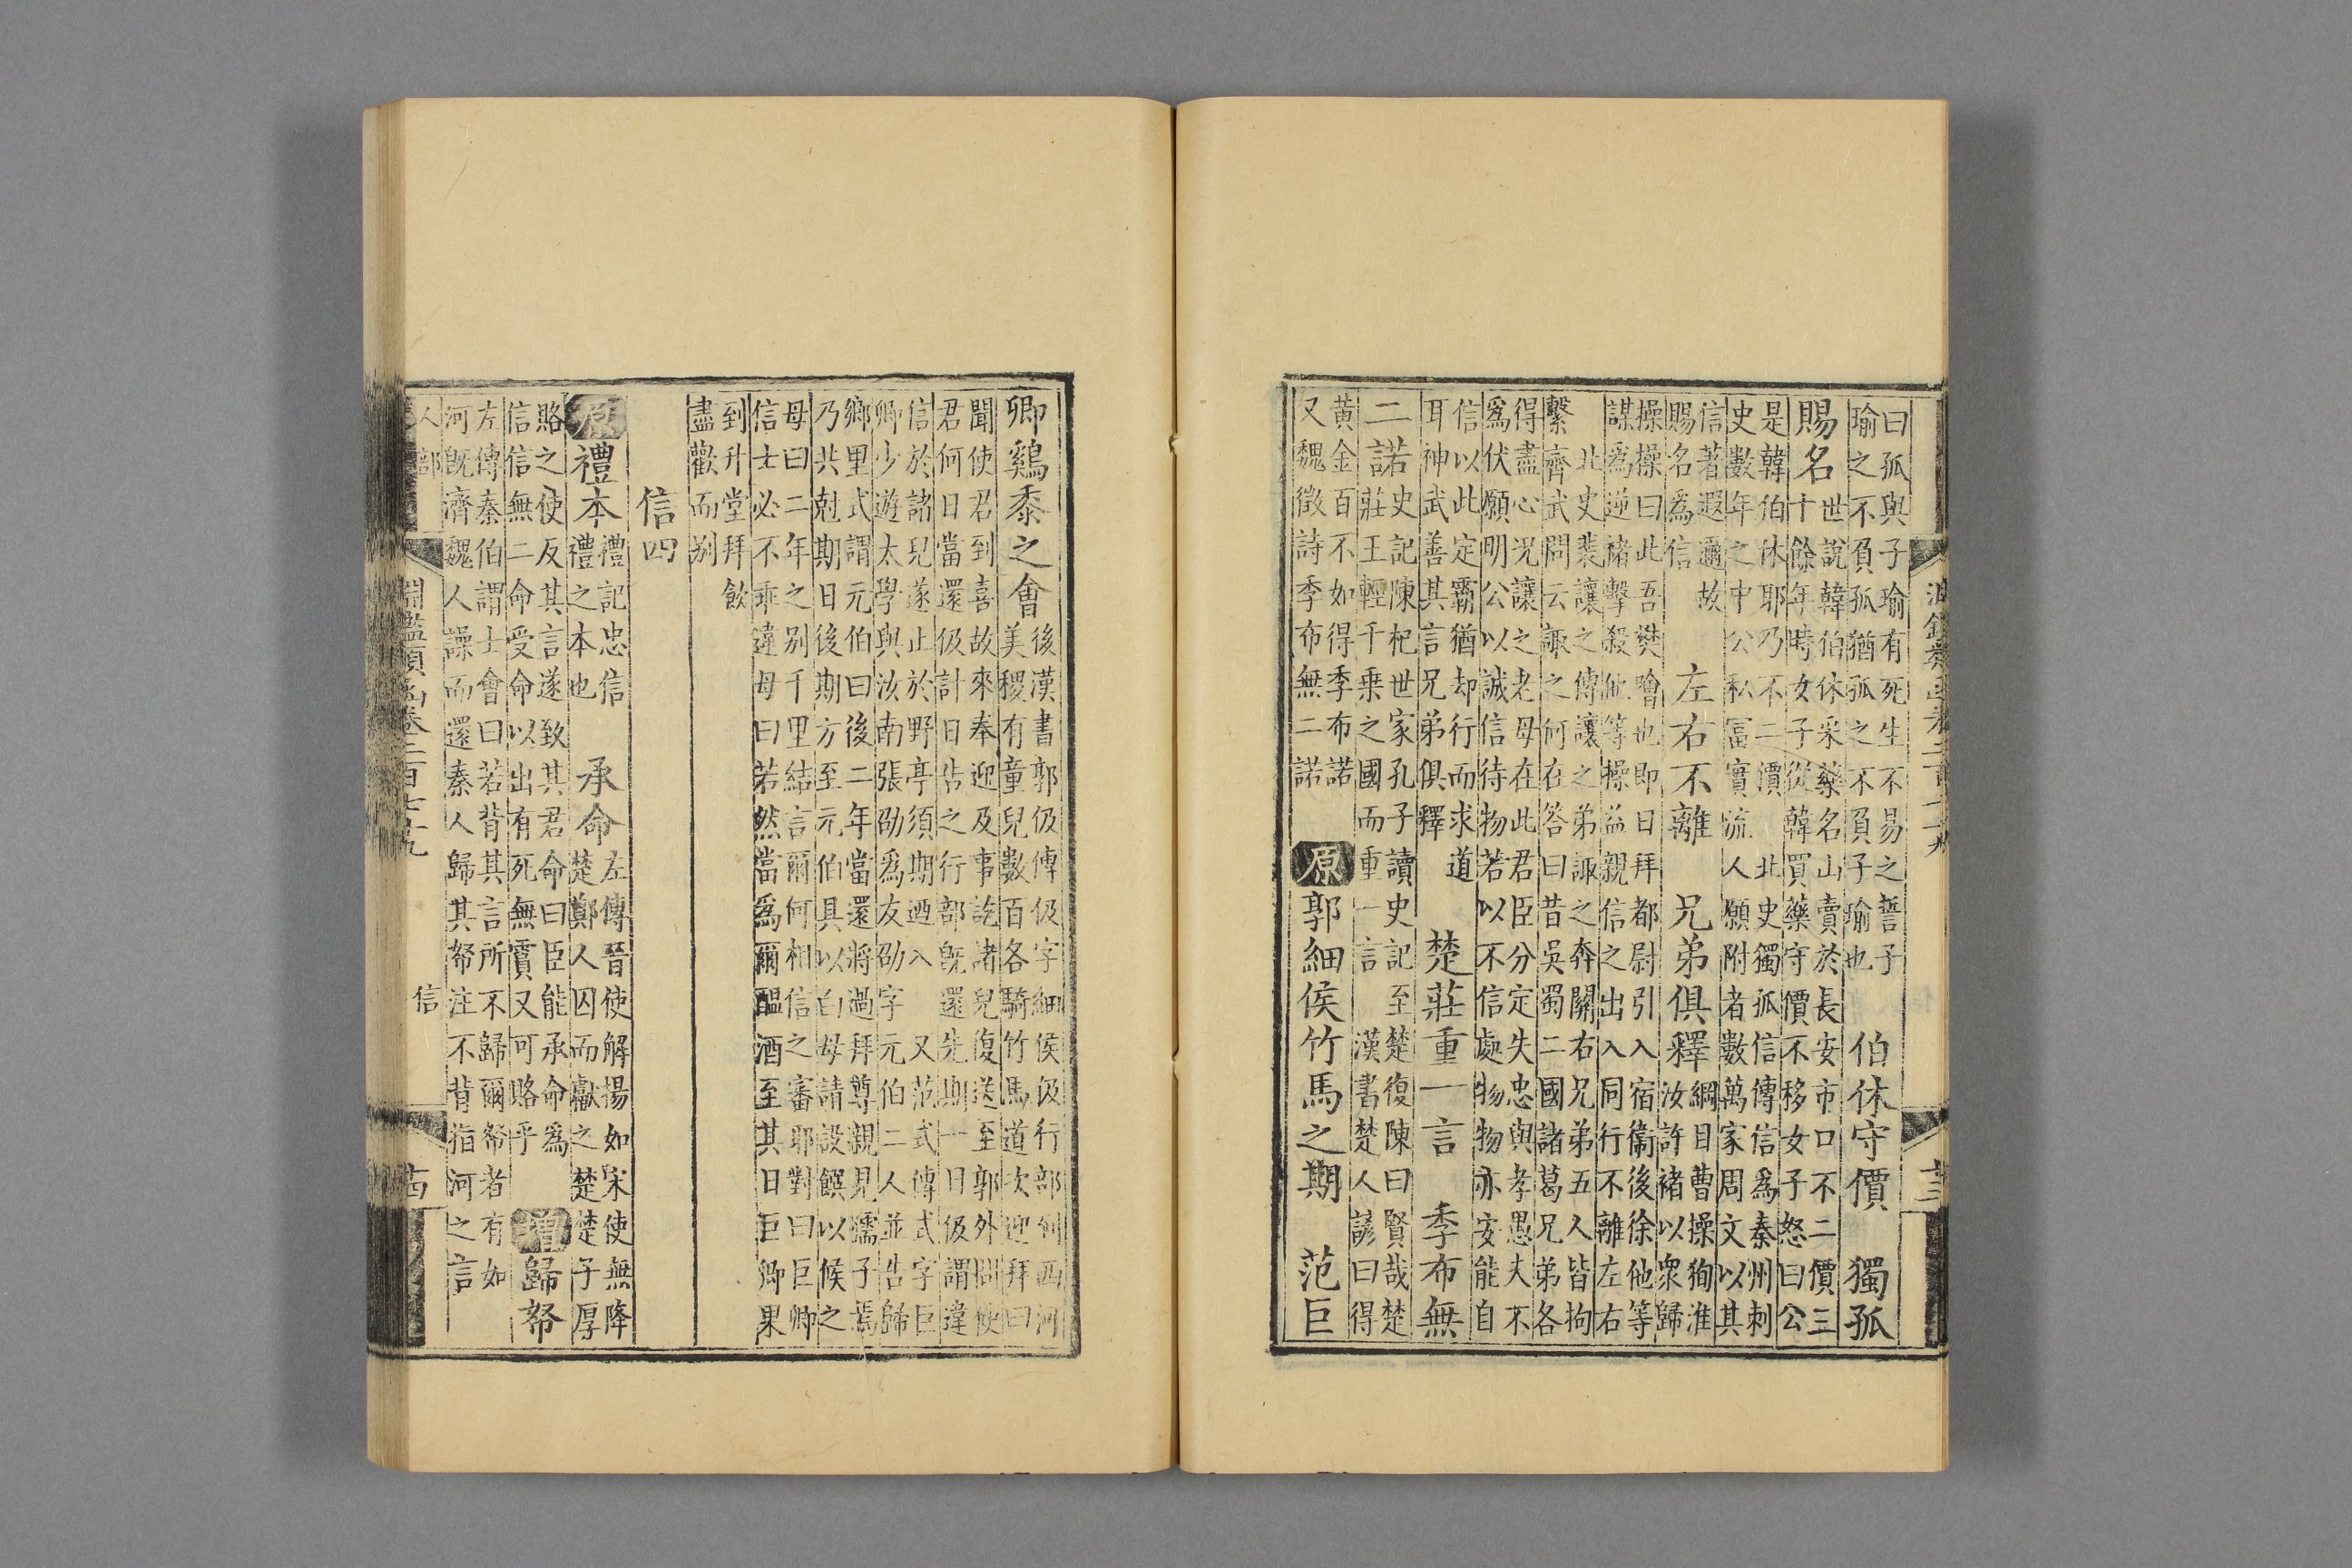 淵鑑類函卷二百七十九
十三
曰孤與子瑜有死生不易之誓子
瑜之不負孤猶孤之不負子瑜也
伯休守價 獨孤
賜名
世說韓伯休采藥名山賣於長安市口不二價三
十餘年時女子從韓買藥守價不移女子怒曰公
是韓伯休耶乃不二價 北史獨孤信傳信爲秦州刺
史數年之中公私富實流人願附者數萬家周文以其
信著遐邇故
賜名爲信
左右不離 兄弟俱釋
綱目曹操徇淮
汝許褚以衆歸
操操曰此吾樊噲也即日拜都尉引入宿衛後徐他等
謀爲逆褚擊殺他等操益親信之出入同行不離左右
北史裴讓之傳讓之弟諏之奔關右兄弟五人皆拘
繫 齊武問云諏之何在答曰昔吳蜀二國諸葛兄弟各
得盡心况讓之老母在此君臣分定失忠與孝愚夫不
爲伏願明公以誠信待物若以不信處物物亦安能自
信以此定霸猶却行而求道
耳神武善其言兄弟俱釋
楚莊重一言 季布無
二諾
史記陳杞世家孔子讀史記至楚復陳曰賢哉楚
莊王輕千乗之國而重一言 漢書楚人諺曰得
黃金百不如得季布諾
又魏徵詩季布無二諾
原 郭細侯竹馬之期 范巨
卿鷄黍之會
後漢書郭伋傳伋字細侯伋行部到西河
美稷有童兒數百各騎竹馬道次迎拜曰
聞使君到喜故來奉迎及事訖諸兒復送至郭外問使
君何日當還伋計日告之行部旣還先期一日伋謂違
信於諸兒遂止於野亭須期迺入 又范式傳式字巨
卿少遊太學與汝南張劭爲友劭字元伯二人並告歸
鄉里式謂元伯曰後二年當還將過拜尊親見孺子焉
乃共尅期日後期方至元伯具以白母請設饌以候之
母曰二年之别千里結言爾何相信之審耶對曰巨卿
信士必不乖違母曰若然當爲爾醖酒至其日巨卿果
到升堂拜飲
盡歡而别
信四
原 禮本
禮記忠信
禮之本也
承命
左傳晉使解揚如宋使無降
楚鄭人囚而獻之楚楚子厚
賂之使反其言遂致其君命曰臣能承命爲
信信無二命受命以出有死無霣又可賂乎
增 歸帑
左傳秦伯謂士會曰若背其言所不歸爾帑者有如
河旣濟魏人譟而還秦人歸其帑注不背指河之言
人部
淵鑑類函卷二百七十九
信
十四